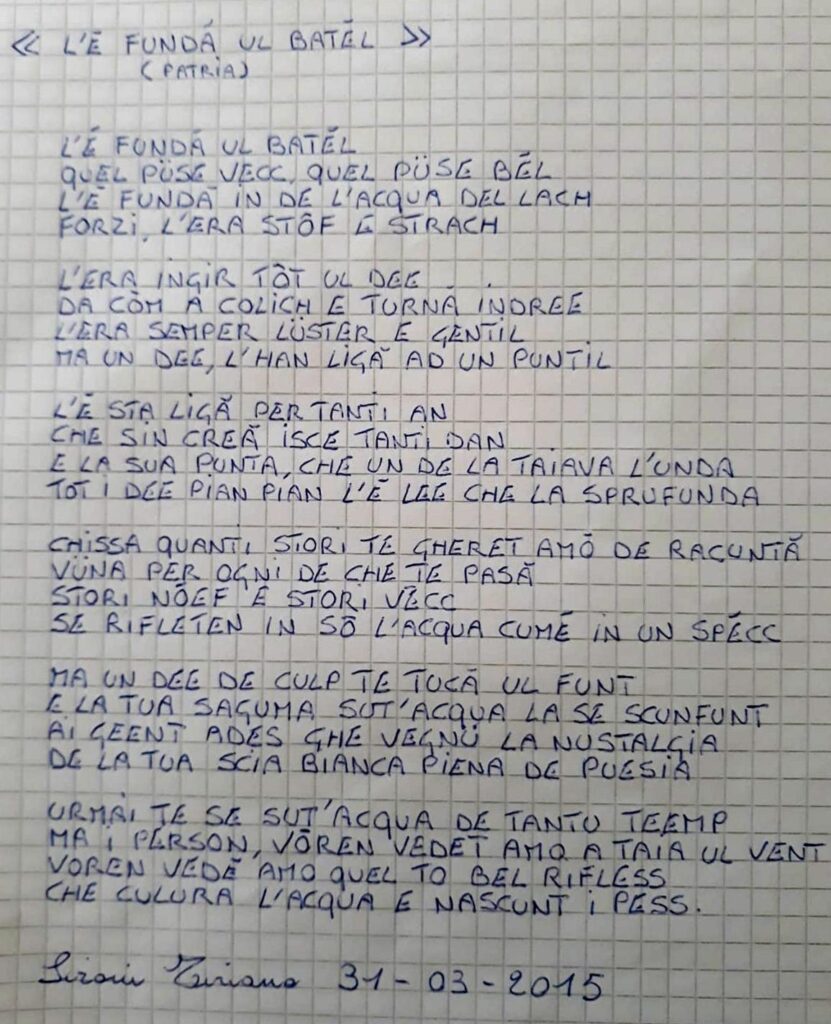 « L'È FUNDÁ UL BATÉL »
(PATRIA)
L'É FUNDÁ UL BATÉL
QUEL PÜSE VECC, QUEL PÜSE BÉL
L'É FUNDÁ IN DE L'ACQUA DEL LACH
FORZI, L'ERA STÔF E STRACH
L'ERA INGIR TÔT UL DEE
DA CÒM A COLICH E TURNÁ INDREE
L'ERA SEMPER LÜSTER E GENTIL
MA UN DEE, L'HAN LIGÁ AD UN PUNTIL
L'É STA LIGÁ PER TANTI AN
CHE SIN CREÁ ISCE TANTI DAN
E LA SUA PUNTA, CHE UN DE LA TAIAVA L'UNDA
TÔT I DEE PIAN PIAN L'É LEE CHE LA SPRUFUNDA
CHISSA QUANTI STORI TE GHERET AMÔ DE RACUNTÁ
VÜNA PER OGNI DE CHE TE PASÁ
STORI NÔEF E STORI VÉCC
SE RIFLETEN IN SÔ L'ACQUA CUMÉ IN UN SPÉCC
MA UN DEE DE CULP TE TUCÁ UL FUNT
E LA TUA SAGUMA SUT'ACQUA LA SE SCUNFUNT
AI GEENT ADES GHE VEGNÜ LA NUSTALGIA
DE LA TUA SCIA BIANCA PIENA DE PUESIA
URMÁI TE SE SUT'ACQUA DE TANTU TEEMP
MA I PERSON, VÔREN VEDET AMO A TAIA UL VENT
VOREN VEDÉ AMO QUEL TO BEL RIFLESS
CHE CULURA L'ACQUA E NASCUNT I PESS.
31-03-2015